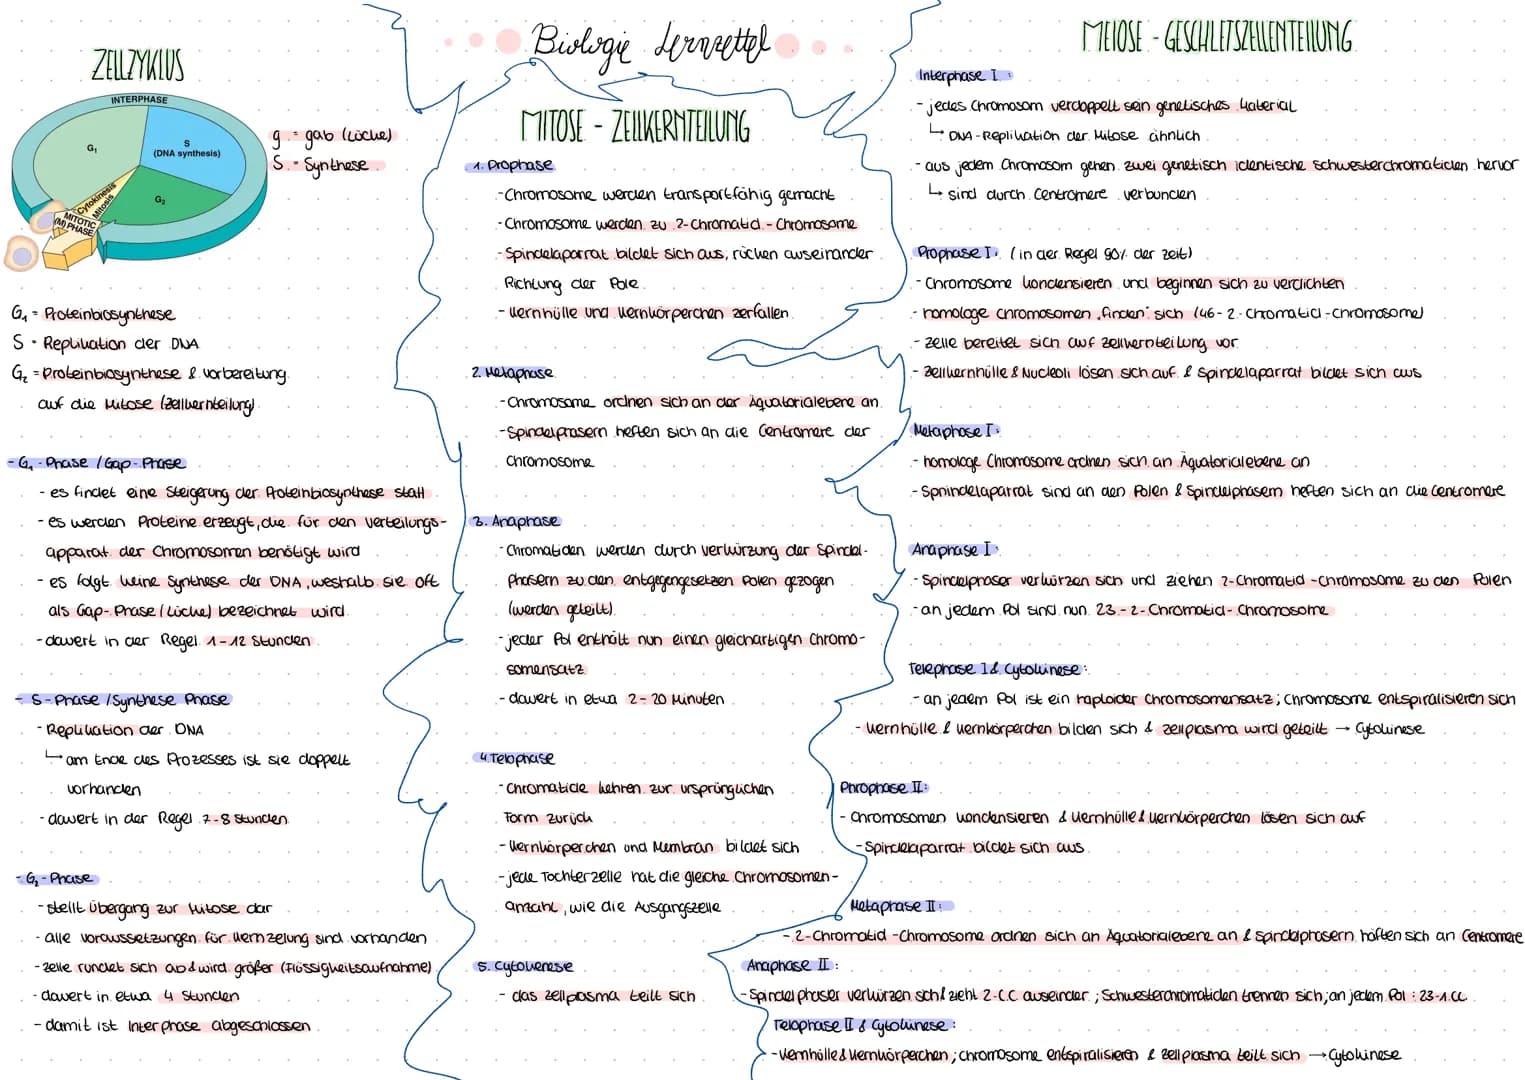 Biologie Lernzettel
ZELLZYKLUS
INTERPHASE
G₁
S
(DNA synthesis)
G₂
Cytokinesis
Mitosis
MITOTIC
(M) PHASE
g = gab (Lücke)
S = Synthese
G₁ = Proteinbiosynthese
S = Replikation der DNA
G₂ = Proteinbiosynthese & Vorbereitung
auf die Mitose (Zellkernteilung)
- G₁-Phase / Gap-Phase
- es findet eine Steigerung der Proteinbiosynthese statt
- es werden Proteine erzeugt, die für den Verteilungs-
apparat der Chromosomen benötigt wird
- es folgt keine Synthese der DNA, weshalb sie oft
als Gap-Phase (Lücke) bezeichnet wird
- dauert in der Regel 1-12 Stunden
- S-Phase / Synthese Phase
- Replikation der DNA
↳ am Ende des Prozesses ist sie doppelt
vorhanden
- dauert in der Regel 7-8 Stunden
- G₂-Phase
- stellt Übergang zur Mitose dar
- alle Voraussetzungen für Kernzelung sind vorhanden
- Zelle rundet sich ab & wird größer (Flüssigkeitsaufnahme)
- dauert in etwa 4 Stunden
- damit ist Interphase abgeschlossen
MITOSE - ZELLKERNTEILUNG
1. Prophase
- Chromosome werden transportfähig gemacht
- Chromosome werden zu 2-Chromatid-Chromosome
- Spindelaparrat bildet sich aus, rücken auseinander
Richtung der Pole
- Kernhülle und Kernkörperchen zerfallen
2. Metaphase
- Chromosome ordnen sich an der Äquatorialebene an
- Spindelphasern heften sich an die Centromere der
Chromosome
3. Anaphase
- Chromatiden werden durch Verkürzung der Spindel-
phasern zu den entgegengesetzen Polen gezogen
(werden geteilt)
- jeder Pol enthält nun einen gleichartigen Chromo-
somensatz
- dauert in etwa 2-20 Minuten
4. Telophase
- Chromatide kehren zur ursprünglichen
Form zurück
- Kernkörperchen und Membran bildet sich
- jede Tochterzelle hat die gleiche Chromosomen-
anzahl, wie die Ausgangszelle
5. Cytokenese
- das Zellplasma teilt sich
MEIOSE - GESCHLETSZELLENTEILUNG
Interphase I:
- jedes Chromosom verdoppelt sein genetisches Material
↳ DNA-Replikation der Mitose ähnlich
- aus jedem Chromosom gehen zwei genetisch identische Schwesterchromatiden hervor
↳ sind durch Centromere verbunden
Prophase I: (in der Regel 90% der Zeit)
- Chromosome kondensieren und beginnen sich zu verdichten
- homologe Chromosomen „finden" sich (46-2-Chromatid-Chromosome)
- Zelle bereitet sich auf Zellkernteilung vor
- Zellkernhülle & Nucleoli lösen sich auf & Spindelaparrat bildet sich aus
Metaphase I:
- homologe Chromosome ordnen sich an Äquatorialebene an
- Sprindelaparrat sind an den Polen & Spindelphasern heften sich an die Centromere
Anaphase I:
- Spindelphaser verkürzen sich und ziehen 2-Chromatid-Chromosome zu den Polen
- an jedem Pol sind nun 23-2-Chromatid-Chromosome
Telephase I & Cytokinese:
- an jedem Pol ist ein haploider Chromosomensatz; Chromosome entspiralisieren sich
- Kernhülle & Kernkörperchen bilden sich & Zellplasma wird geteilt → Cytokinese
Phrophase II:
- Chromosomen kondensieren & Kernhülle & Kernkörperchen lösen sich auf
- Spindelaparrat bildet sich aus
Metaphase II:
- 2-Chromatid-Chromosome ordnen sich an Äquatorialebene an & Spindelphasern haften sich an Centromere
Anaphase II:
- Spindelphaser verkürzen sich & zieht 2-C.C auseinder; Schwesterchromatiden trennen sich; an jedem Pol: 23-1-CC
Telophase II & Cytokinese:
- Kernhülle & Kernkörperchen; Chromosome entspiralisieren & Zellplasma teilt sich → Cytokinese